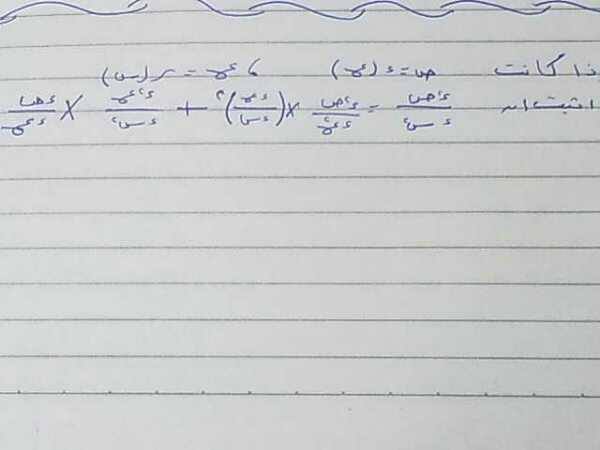 ذا كانت ص = د (ع) ، ع = ر (س)
اثبت ان د²ص/د س² = د²ص/د ع² × (د ع/د س)² + د²ع/د س² × د ص/د ع